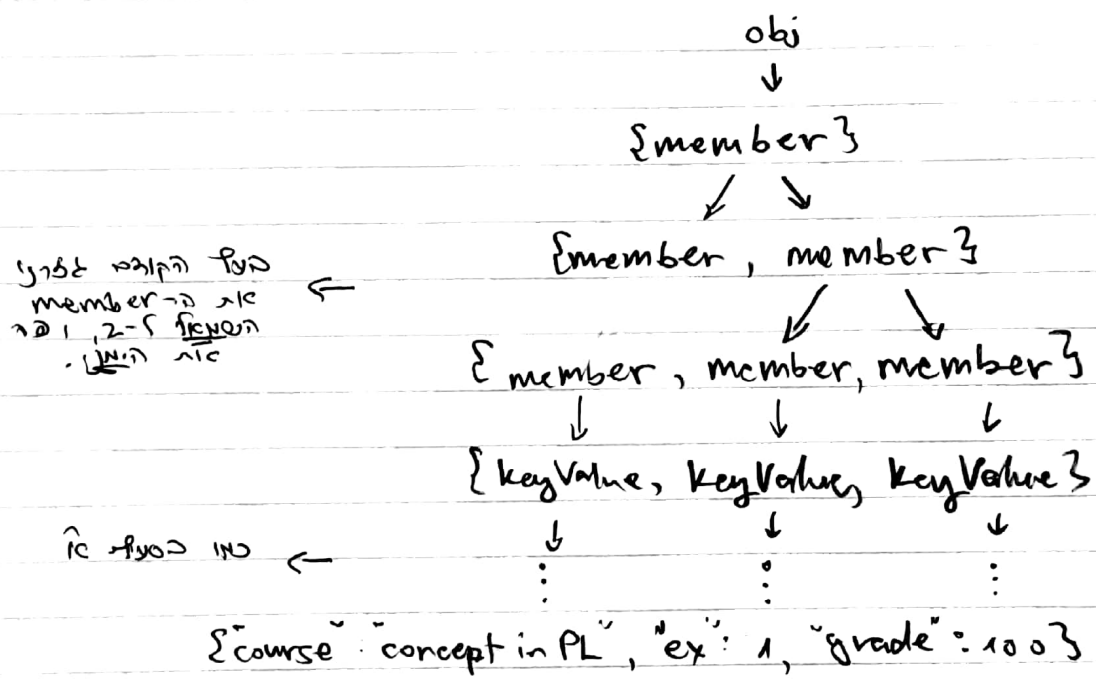 obj
{member}
{member, member}
בעץ הקודם גזרנו
את ה-member
השמאלי ל-2, ופה
את הימני.
{member, member, member}
{keyValue, keyValue, keyValue}
כמו בסעיף א'
{"course": "concept in PL", "ex": 1, "grade": 100}